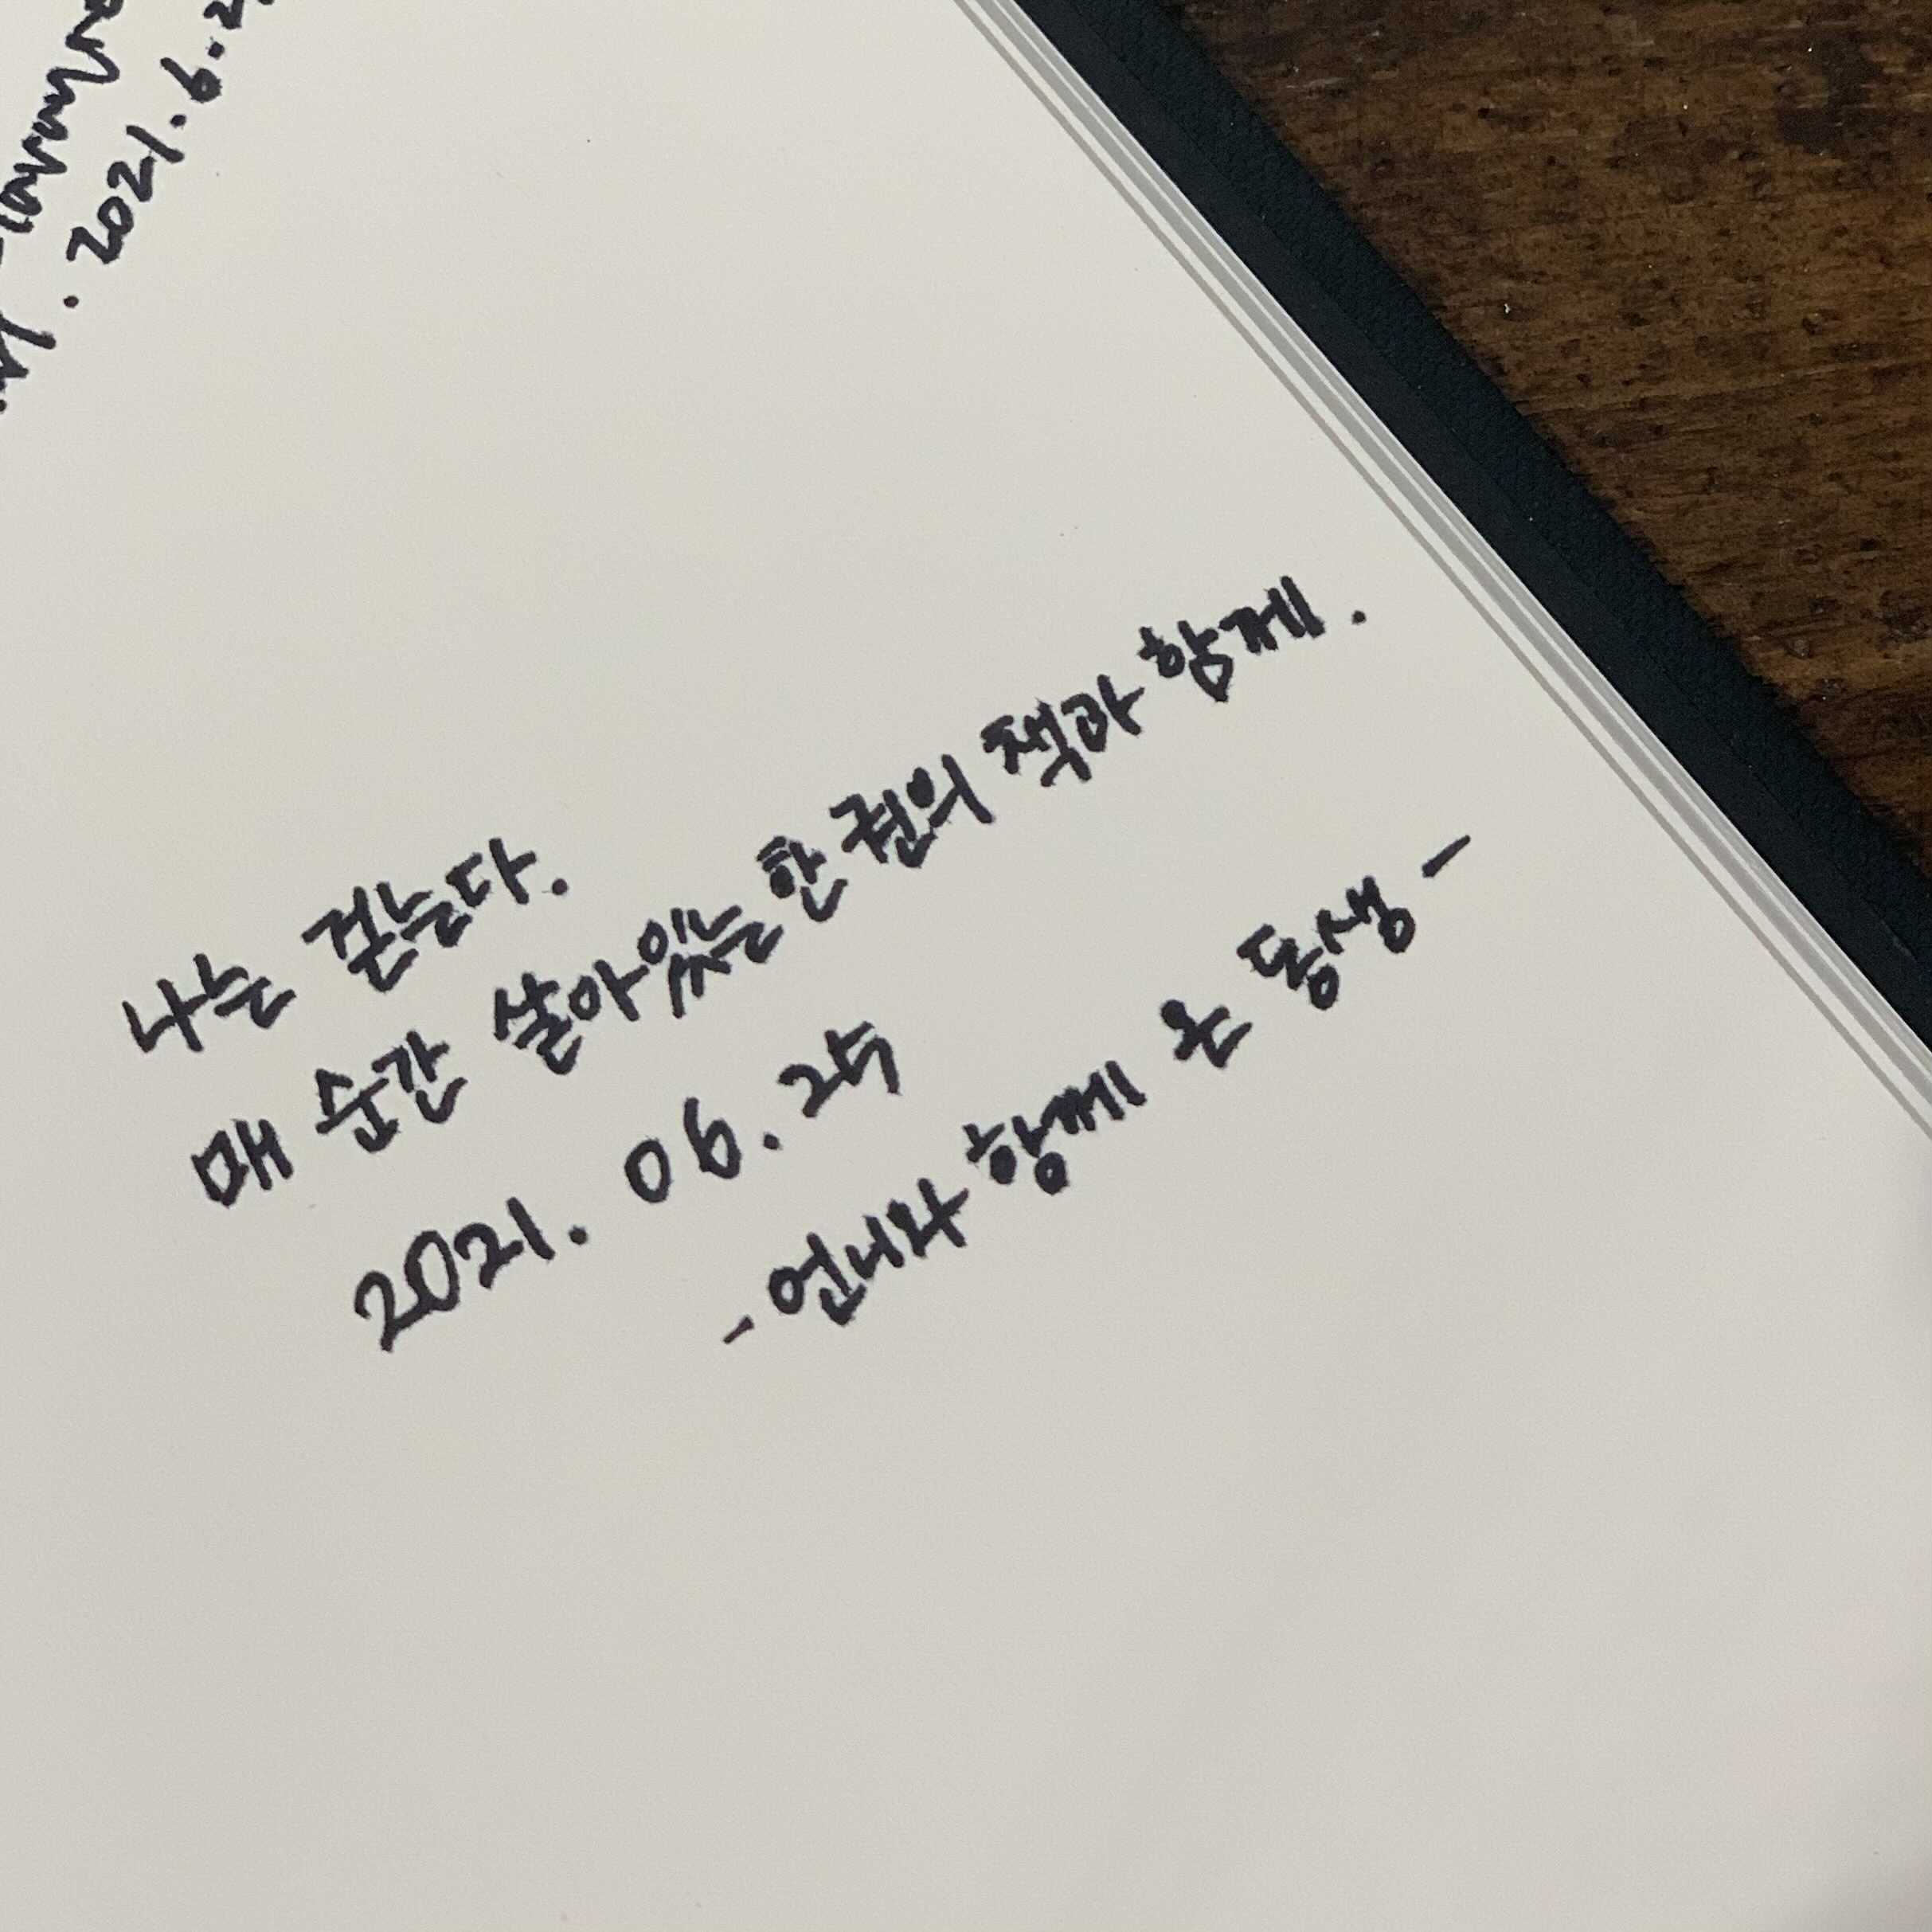 2021.6.2
나는 걷는다.
매 순간 살아있는 한 권의 책과 함께.
2021. 06. 25
- 언니와 함께 온 동생 -